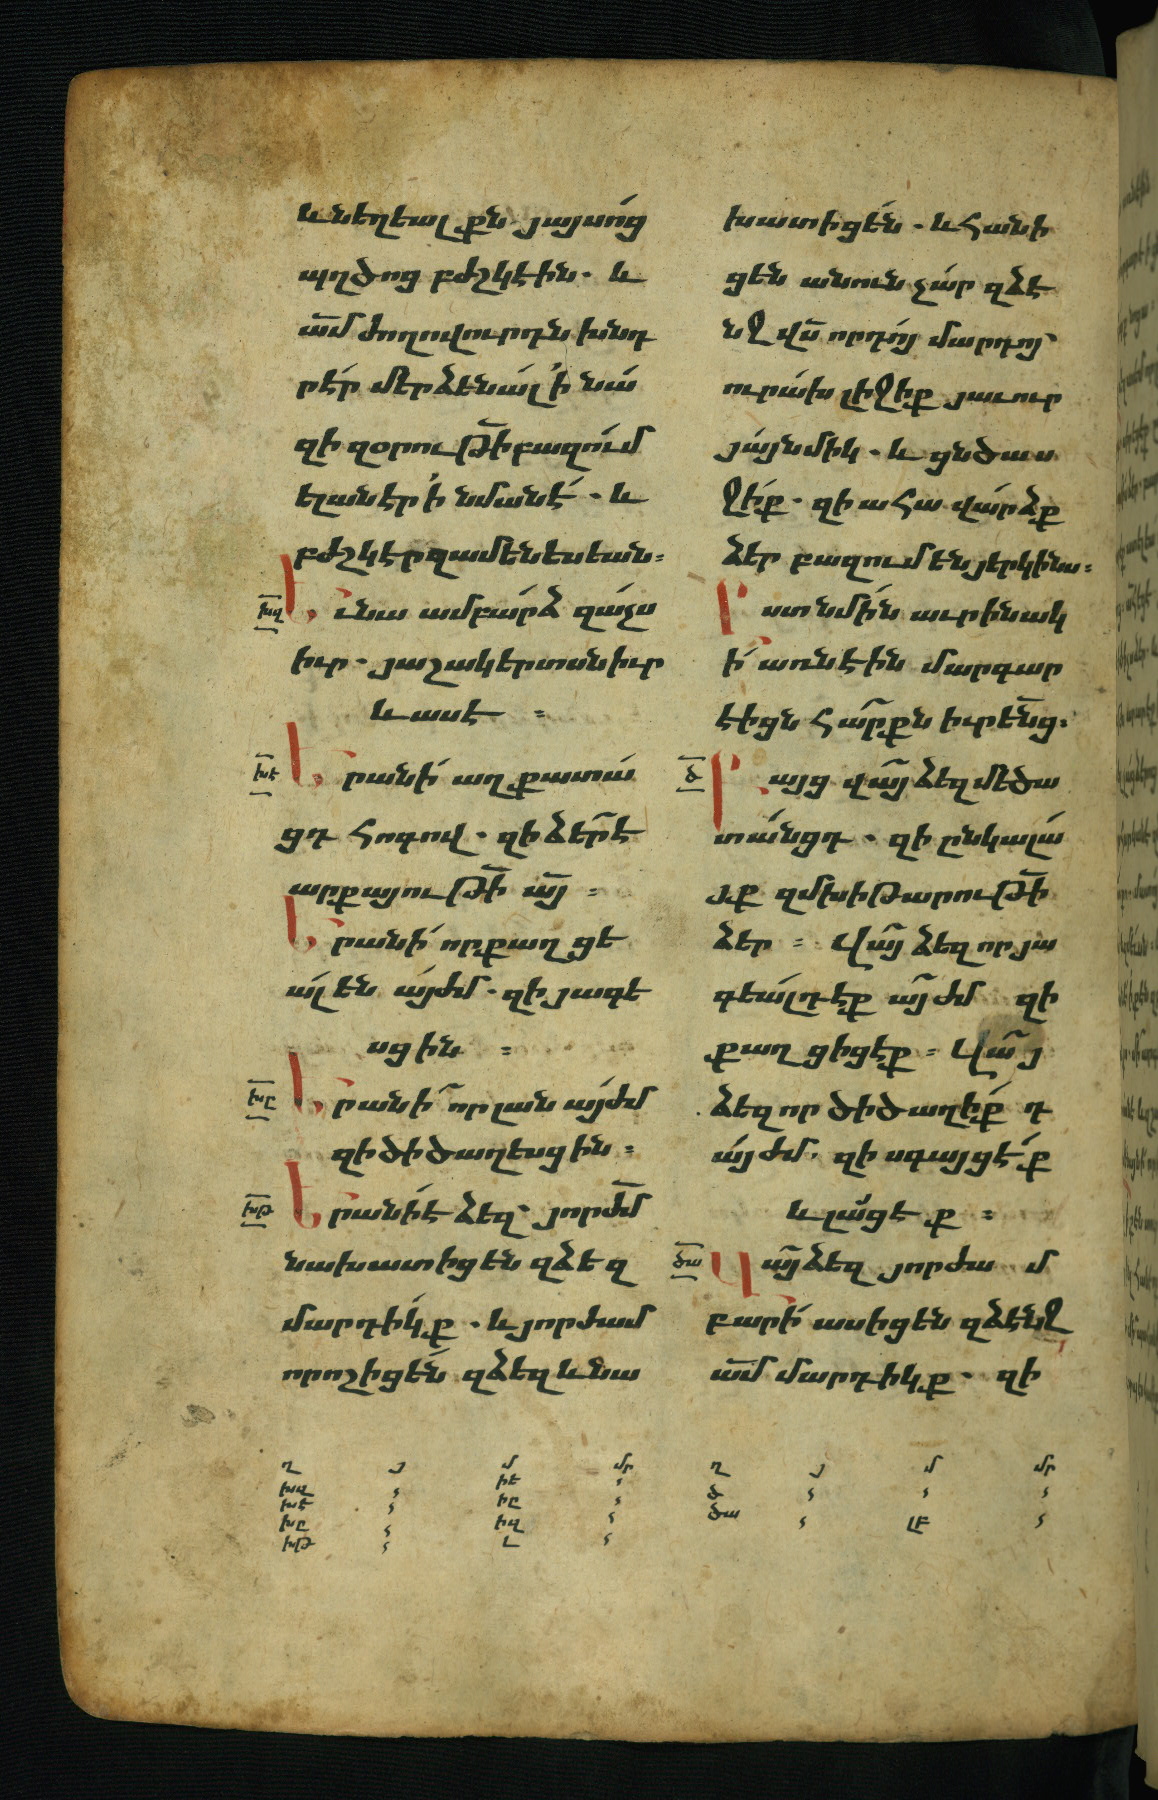 և նեղեալքն յայսոց
պղծոց բժշկէին. և
ամ ժողովուրդն խնդ
րէր մերձենալ ի նա
զի զօրութի բազում
ելանէր ի նմանէ. և
բժշկէր զամենեսեան:
խզ Եւ նա ամբարձ զաչս
իւր. յաշակերտսն իւր
և ասէ :
խէ Երանի աղքատա
ցդ հոգով. զի ձեր է
արքայութի այ :
Երանի որ քաղցե
ալ էն այժմ. զի յագե
սցին :
խը Երանի որ լան այժմ
զի ծիծաղեսցին :
խթ Երանի է ձեզ յորժմ
նախատիցեն զձեզ
մարդիկք. և յորժամ
որոշիցեն զձեզ և նա
խատիցեն. և հանի
ցեն անուն չար զձէ
նջ վն որդոյ մարդոյ
ուրախ լիջիք յաւուր
յայնմիկ. և ցնծաս
ջիք. զի ահա վարձք
ձեր բազում էն յերկինս:
Ըստ նմին աւրինակ
ի առնէին մարգար
էիցն հարքն իւրենց:
ծ Բայց վայ ձեզ մեծա
տանցդ. զի ընկալա
յք զմխիթարութի
ձեր : Վայ ձեզ որ յա
գեալդ էք այժմ զի
քաղցիցէք : Վայ
ձեզ որ ծիծաղիք դ
այժմ. զի սգայցէք
և լացէք :
ծա Վայ ձեզ յորժամ
բարի ասիցեն զձէնջ
ամ մարդիկք. զի
ղ յ մ մր ղ յ մ մր
խզ իէ ծ
խէ իը ծա լէ
խը իզ
խթ լ